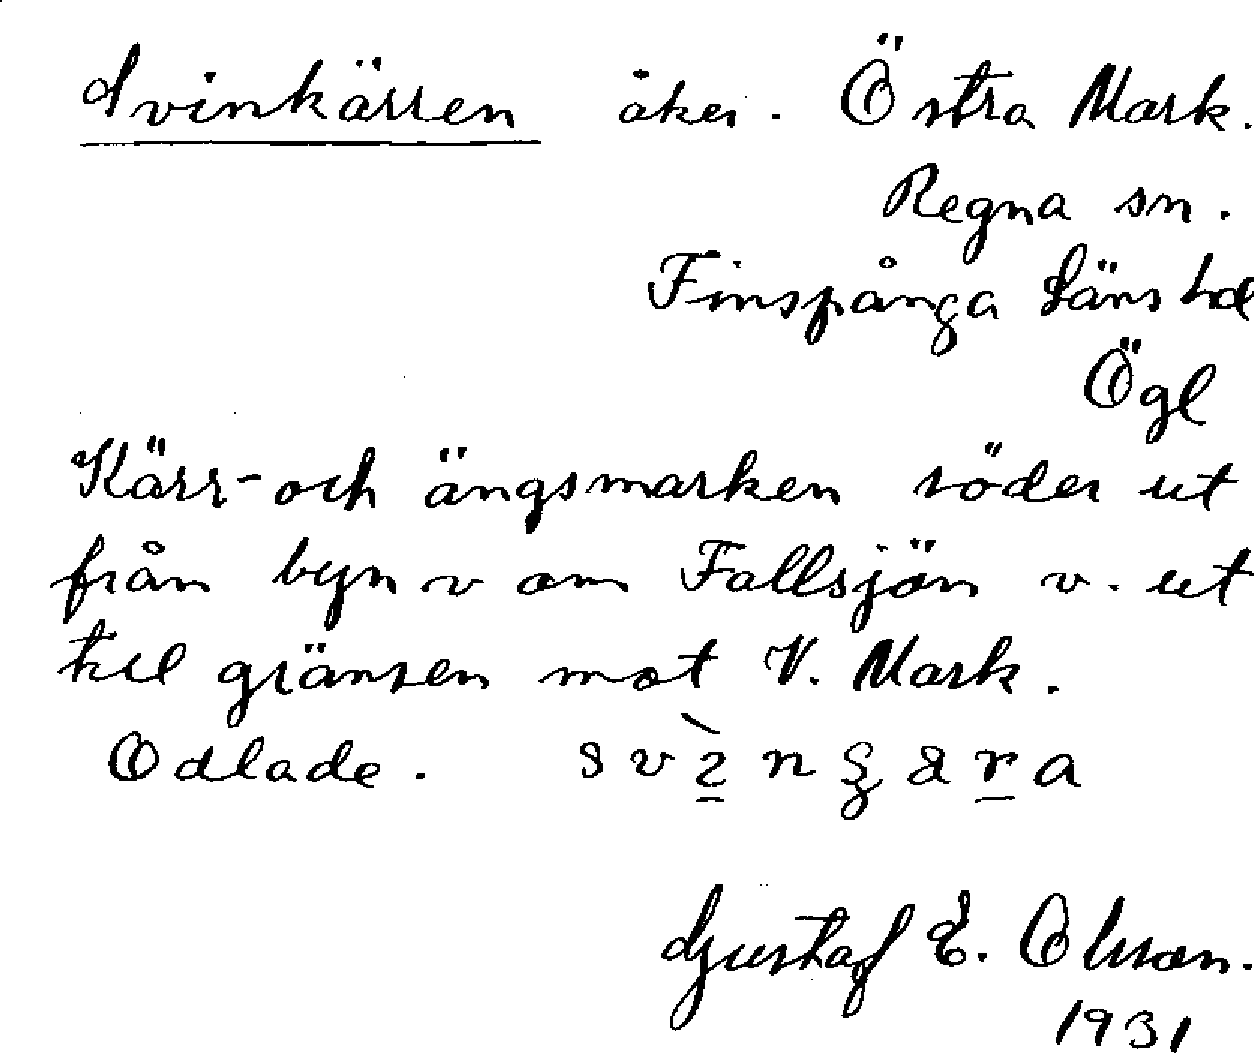 Svinkärren åker. Östra Mark.
Regna sn.
Finspånga läns hd
Ögl
Kärr- och ängsmarken söder ut
från byn v om Fallsjön v. ut
till gränsen mot V. Mark.
Odlade.
Gustaf E. Olsson.
1931